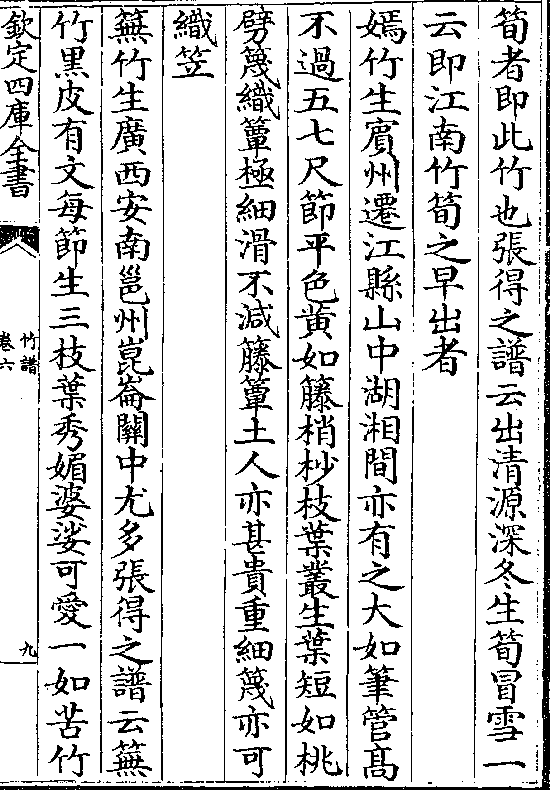 筍者即此竹也張得之譜云出清源深冬生筍冒雪一
云即江南竹筍之早出者
嫣竹生賓州遷江縣山中湖湘間亦有之大如筆管髙
不過五七尺節平色黄如籐梢杪枝葉叢生葉短如桃
劈篾織簟極細滑不減籐簟土人亦甚貴重細篾亦可
織笠
䉋竹生廣西安南邕州崑崙關中尤多張得之譜云䉋
竹黒皮有文每節生三枝葉秀媚婆娑可愛一如苦竹
欽定四庫全書
竹譜
卷六
九